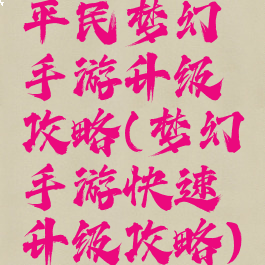 平民梦幻
手游升级
攻略(梦幻
手游快速
升级攻略)